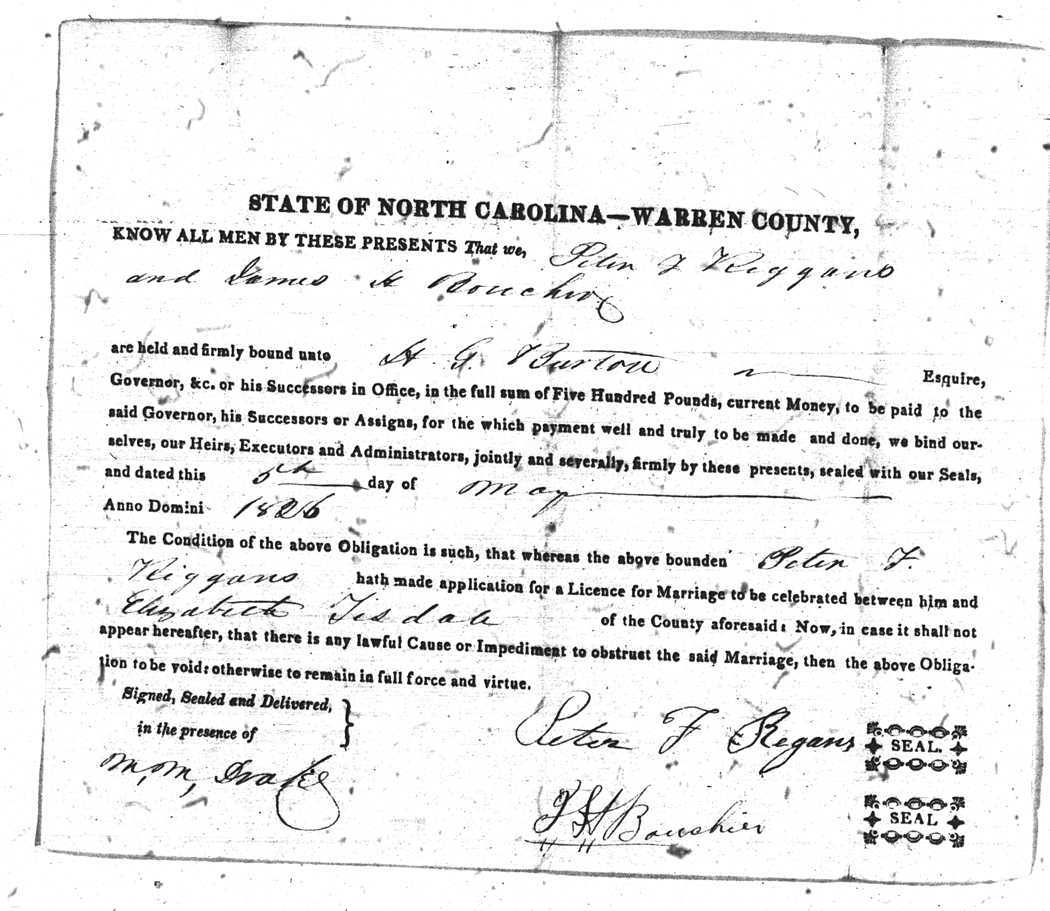 STATE OF NORTH CAROLINA—WARREN COUNTY,
KNOW ALL MEN BY THESE PRESENTS That we, Peter F Riggans
and James H Bouchier
are held and firmly bound unto H G Burton Esquire,
Governor, &c. or his Successors in Office, in the full sum of Five Hundred Pounds, current Money, to be paid to the
said Governor, his Successors or Assigns, for the which payment well and truly to be made and done, we bind our-
selves, our Heirs, Executors and Administrators, jointly and severally, firmly by these presents, sealed with our Seals,
and dated this 5th day of May
Anno Domini 1826
The Condition of the above Obligation is such, that whereas the above bounden Peter F.
Riggans hath made application for a Licence for Marriage to be celebrated between him and
Elizabeth Tisdale of the County aforesaid: Now, in case it shall not
appear hereafter, that there is any lawful Cause or Impediment to obstruct the said Marriage, then the above Obliga-
tion to be void: otherwise to remain in full force and virtue.
Signed, Sealed and Delivered,
in the presence of
Peter F Regans SEAL.
M, M, Drake
J H Boushier SEAL